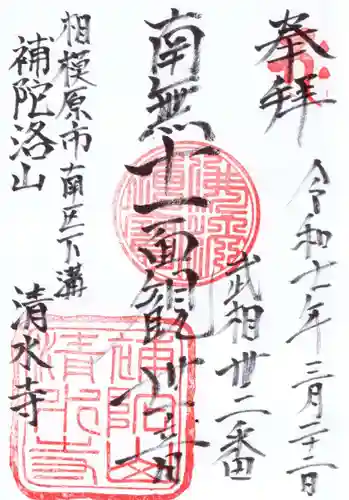 奉拝
令和七年三月二十一日
武相卅二番
南無十一面観世音
相模原市南区下溝
補陀洛山
清水寺
補陀山
清水寺